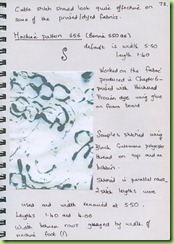 73
Cable stitch should look quite effective on
some of the printed/dyed fabrics.
Machine pattern 556 (Bernina 550 QE)
default is width 5.50
length 1.60
Worked on the fabric
produced in Chapter 6 -
printed with thickened
Procion dye using glue
on foam board
Sample stitched using
Black Gutermann polyester
thread on top and in
bobbin.
Stitched in parallel rows,
stitch lengths were
used and width remained at 5.50.
lengths 1.60 and 4.00
Width between rows gauged by width of
machine foot (1)